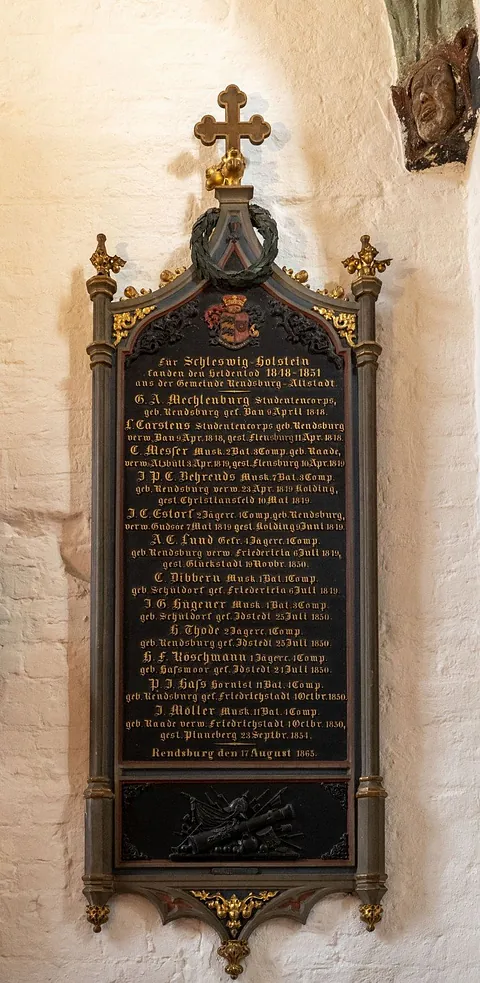 Für Schleswig-Holstein
fanden den Heldentod 1848-1851
aus der Gemeinde Rendsburg-Altstadt.
G. A. Mechlenburg Studentencorps,
geb. Rendsburg gef. Bau 9 April 1848.
F. Carstens Studentencorps geb. Rendsburg
verw. Bau 9 Apr. 1848, gest. Flensburg 11 Apr. 1848.
C. Messer Musk. 2 Bat. 3 Comp. geb. Raade,
verw. Atzbüll 3 Apr. 1849, gest. Flensburg 10 Apr. 1849
J. P. C. Behrends Musk. 7 Bat. 3 Comp.
geb. Rendsburg verw. 23 Apr. 1849 Kolding,
gest. Christiansfeld 10 Mai 1849.
J. C. Estorf 2 Jägerc. 1 Comp. geb. Rendsburg,
verw. Gudsoe 7 Mai 1849 gest. Kolding 9 Juni 1849.
A. C. Lund Gefr. 4 Jägerc. 1 Comp.
geb. Rendsburg verw. Friedericia 6 Juli 1849,
gest. Glückstadt 19 Novbr. 1850.
C. Dibbern Musk 1 Bat. 1 Comp.
geb. Schüldorf gef. Friedericia 6 Juli 1849.
J. G. Hügener Musk 1 Bat. 3 Comp.
geb. Schüldorf gef. Idstedt 25 Juli 1850.
H. Thode 2 Jägerc. 1 Comp.
geb. Rendsburg gef. Idstedt 25 Juli 1850.
H. F. Röschmann 1 Jägerc. 1 Comp.
geb. Hassmoor gef. Idstedt 24 Juli 1850.
P. J. Hass Hornist 11 Bat. 1 Comp.
geb. Rendsburg gef. Friedrichstadt 4 Octbr. 1850.
J. Möller Musk. 11 Bat. 4 Comp.
geb. Raade verw. Friedrichstadt 4 Octbr. 1850,
gest. Pinneberg 23 Septbr. 1854.
Rendsburg den 17 August 1865.